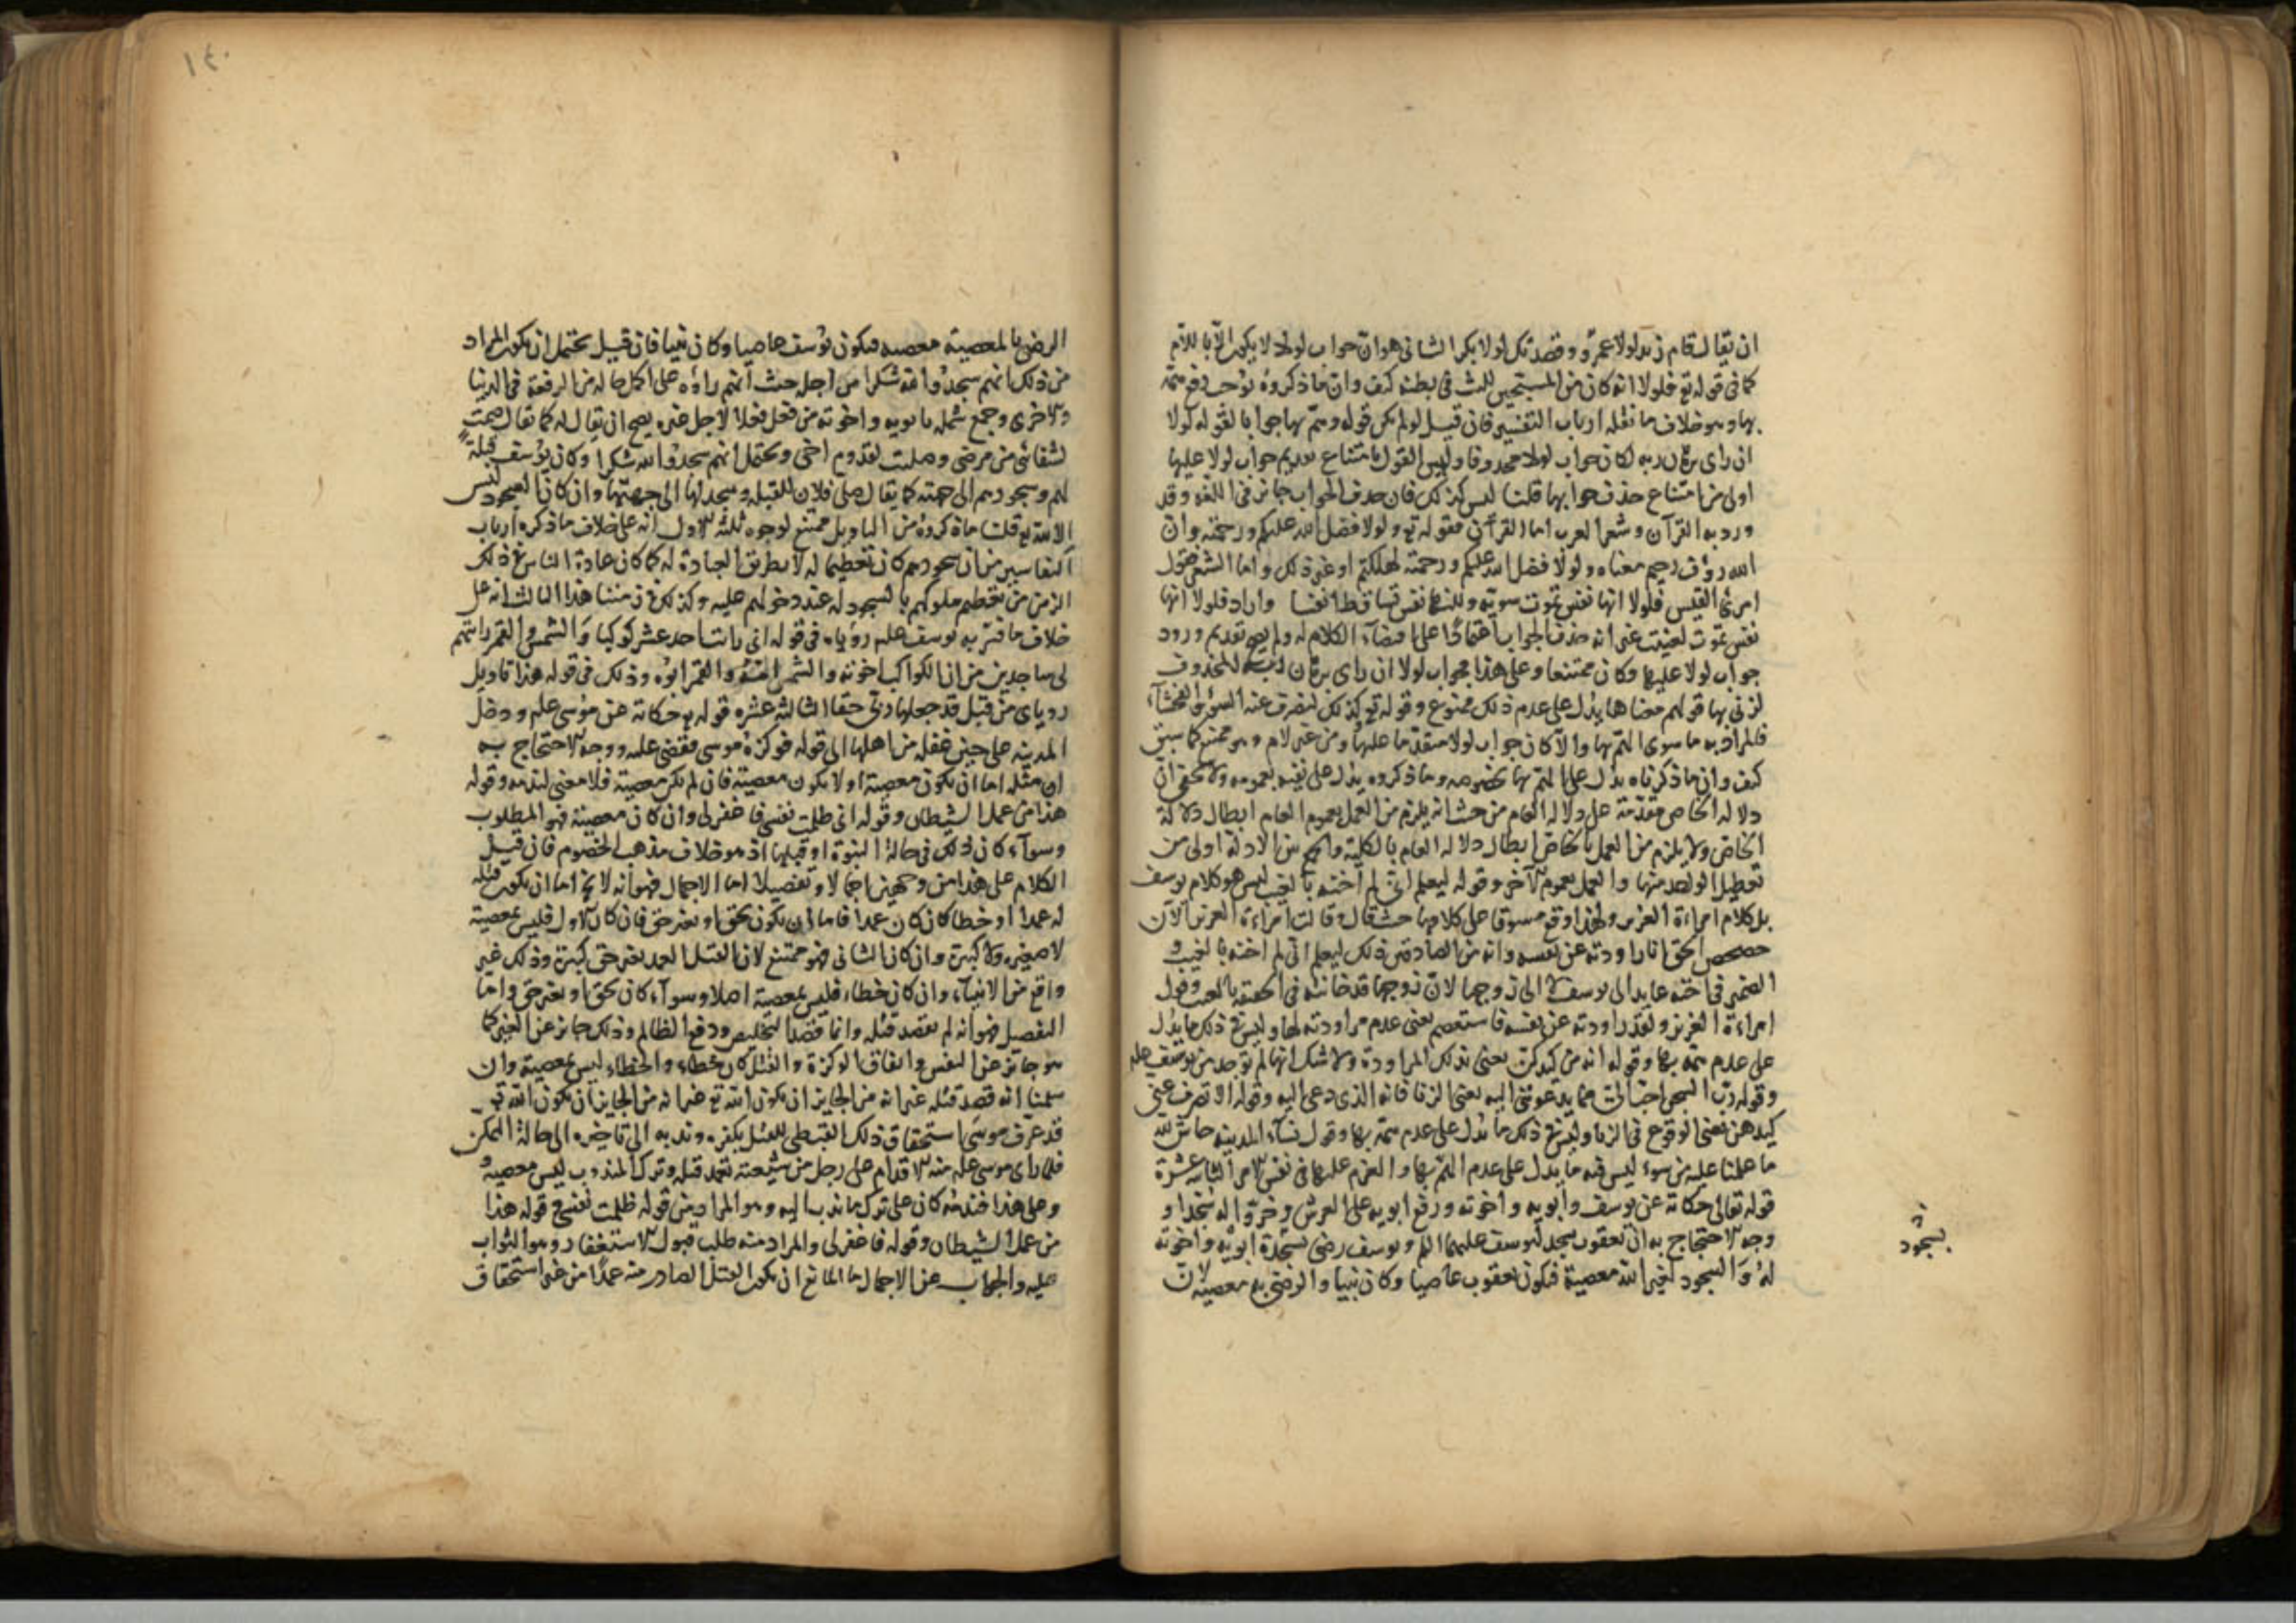 ان يقال قام زيد لولا عمرو وقصدتك لولا بكر الثاني هو ان جواب لولا لا يكون الا باللام
كما في قوله تع فلولا انه كان من المسبحين للبث في بطنه كيف وان ما ذكروه يوجب رفع همه
بها وهو خلاف ما نقله ارباب التفسير فان قيل لو لم يكن قوله وهم بها جوابا لقوله لولا
ان راى برهان ربه لكان جواب لولا محذوفا وليس القول بامتناع تقديم جواب لولا عليها
اولى من امتناع حذف جوابها قلنا ليس كذلك فان حذف الجواب جائز في اللغه وقد
ورد به القرآن وشعر العرب اما القرآن فقوله تع ولولا فضل الله عليكم ورحمته وان
الله رؤف رحيم معناه ولولا فضل الله عليكم ورحمته لهلكتم او غير ذلك واما الشعر فقول
امرئ القيس فلولا انها نفس تموت سوية ولكنها نفس تساقط انفسا واراد فلولا انها
نفس تموت لفنيت غير انه حذف الجواب اعتمادا على اقتضاء الكلام له ولم يصح تقديم ورود
جواب لولا عليها وكان ممتنعا وعلى هذا فجواب لولا ان راى برهان ربه المحذوف
لزنى بها قولهم معنا ما يدل على عدم ذلك ممنوع وقوله تع كذلك لنصرف عنه السوء والفحشاء
فالمراد به ما سوى الهم بها والا كان جواب لولا متقدما عليها ومن غير لام وهو ممتنع كما سبق
كيف وان ما ذكرناه يدل على الهم بها بخصوصه وما ذكروه يدل على نفيه بعمومه ولا يخفى ان
دلالة الخاص مقدمة على دلالة العام من حيث انه يلزم من العمل بعموم العام ابطال دلالة
الخاص ولا يلزم من العمل بالخاص ابطال دلالة العام بالكلية والجمع بين الادلة اولى من
تعطيل الواحد منها والعمل بعموم الآخر وقوله ليعلم اني لم اخنه بالغيب ليس هو كلام يوسف
بل كلام امراءة العزيز ولهذا وقع مسوقا على كلامها حيث قال وقالت امراءة العزيز الآن
حصحص الحق انا راودته عن نفسه وانه من الصادقين ذلك ليعلم اني لم اخنه بالغيب و
الضمير في اخنه عايد الى يوسف لا الى زوجها لان زوجها قد خانته في الحقيقة بالغيب وقول
امراءة العزيز ولقد راودته عن نفسه فاستعصم يعني عدم مراودته لها وليس في ذلك ما يدل
على عدم همه بها وقوله انه من كيدكن يعني بذلك المراودة ولا شك انها لم توجد من يوسف علم
وقوله رب السجن احب الي مما يدعونني اليه يعني الزنا فانه الذي دعي اليه وقوله الا تصرف عني
كيدهن يعني الوقوع في الزنا وليس في ذلك ما يدل على عدم همه بها وقول نساء المدينه حاش لله
ما علمنا عليه من سوء ليس فيه ما يدل على عدم الهم بها والعزم عليها في نفس الامر الثانية عشرة
قوله تعالى حكاية عن يوسف وابويه واخوته ورفع ابويه على العرش وخروا له سجدا و
وجه الاحتجاج به ان يعقوب سجد ليوسف عليهما السلم ويوسف رضي بسجدة ابويه واخوته
له والسجود لغير الله معصية فيكون يعقوب عاصيا وكان نبيا والرضى به معصية لان
بسجود
١٤٠
الرضى بالمعصية معصيه فيكون يوسف عاصيا وكان نبيا فان قيل يحتمل ان يكون المراد
من ذلك انهم سجدوا لله شكرا من اجله حيث انهم راوه على اكمل حاله من الرفعة في الدنيا
والاخرى وجمع شمله بابويه واخوته من فعل فعلا لاجل غيره يصح ان يقال له كما يقال صمت
لشفائي من مرضي وصليت لقدوم اخي ويحتمل انهم سجدوا لله شكرا وكان يوسف قبلة
لهم وسجودهم الى جهته كما يقال صلى فلان للقبله وسجد لها الى جهتها وان كان السجود ليس
الا لله تع قلنا ما ذكروه من التاويل ممتنع لوجوه ثلثة الاول انه على خلاف ما ذكره ارباب
التفاسير من ان سجودهم كان تعظيما له لا بطريق العبادة له كما كان عادة الناس في ذلك
الزمن من تعظيم ملوكهم بالسجود له عند دخولهم عليه وكذلك في زمننا هذا الثالث انه على
خلاف ما فسر به يوسف علم رؤياه في قوله اني رايت احد عشر كوكبا والشمس والقمر رايتهم
لي ساجدين من ان الكواكب اخوته والشمس امه والقمر ابوه وذلك في قوله هذا تاويل
روياي من قبل قد جعلها ربي حقا الثالثة عشره قوله تع حكاية عن موسى علم ودخل
المدينه على حين غفلة من اهلها الى قوله فوكزه موسى فقضى عليه ووجه الاحتجاج به
ان مثله اما ان يكون معصية او لا يكون معصية فان لم تكن معصية فلا معنى لندمه وقوله
هذا من عمل الشيطان وقوله اني ظلمت نفسي فاغفر لي وان كان معصية فهو المطلوب
وسواء كان ذلك في حالة النبوة او قبلها اذ هو خلاف مذهب الخصوم فان قيل
الكلام على هذا من وجهين اجمالا وتفصيلا اما الاجمال فهو انه لا يخ اما ان يكون قتله
له عمدا او خطا كان كان عمدا فاما ان يكون بحق او بغير حق فان كان الاول فليس بمعصية
لا صغيره ولا كبيرة وان كان الثاني فهو ممتنع لان القتل العمد بغير حق كبيرة وذلك غير
واقع من الانبياء وان كان خطاء فليس بمعصية اصلا وسواء كان بحق او بغير حق واما
التفصيل فهو انه لم يقصد قتله وانما قصد التخليص ودفع الظالم وذلك جائز عن الغير كما
هو جائز عن النفس واتفاق الوكزة والقتل كان خطاء والخطاء ليس بمعصية وان
سلمنا انه قصد قتله غير انه من الجايز ان يكون الله تع غير انه من الجايز ان يكون الله تع
قد عرف موسى استحقاق ذلك القبطي للقتل بكفره وندبه الى تاخيره الى حالة التمكن
فلما راى موسى علم منه الاقدام على رجل من شيعته تعمد قتله وترك المندوب ليس معصية
وعلى هذا فندمه كان على ترك ما ندب اليه وهو المراد من قوله ظلمت نفسي في قوله هذا
من عمل الشيطان وقوله فاغفر لي والمراد منه طلب قبول الاستغفار وهو الثواب
عليه والجواب عن الاجمال ما المانع ان يكون القتل الصادر منه عمدا من غير استحقاق